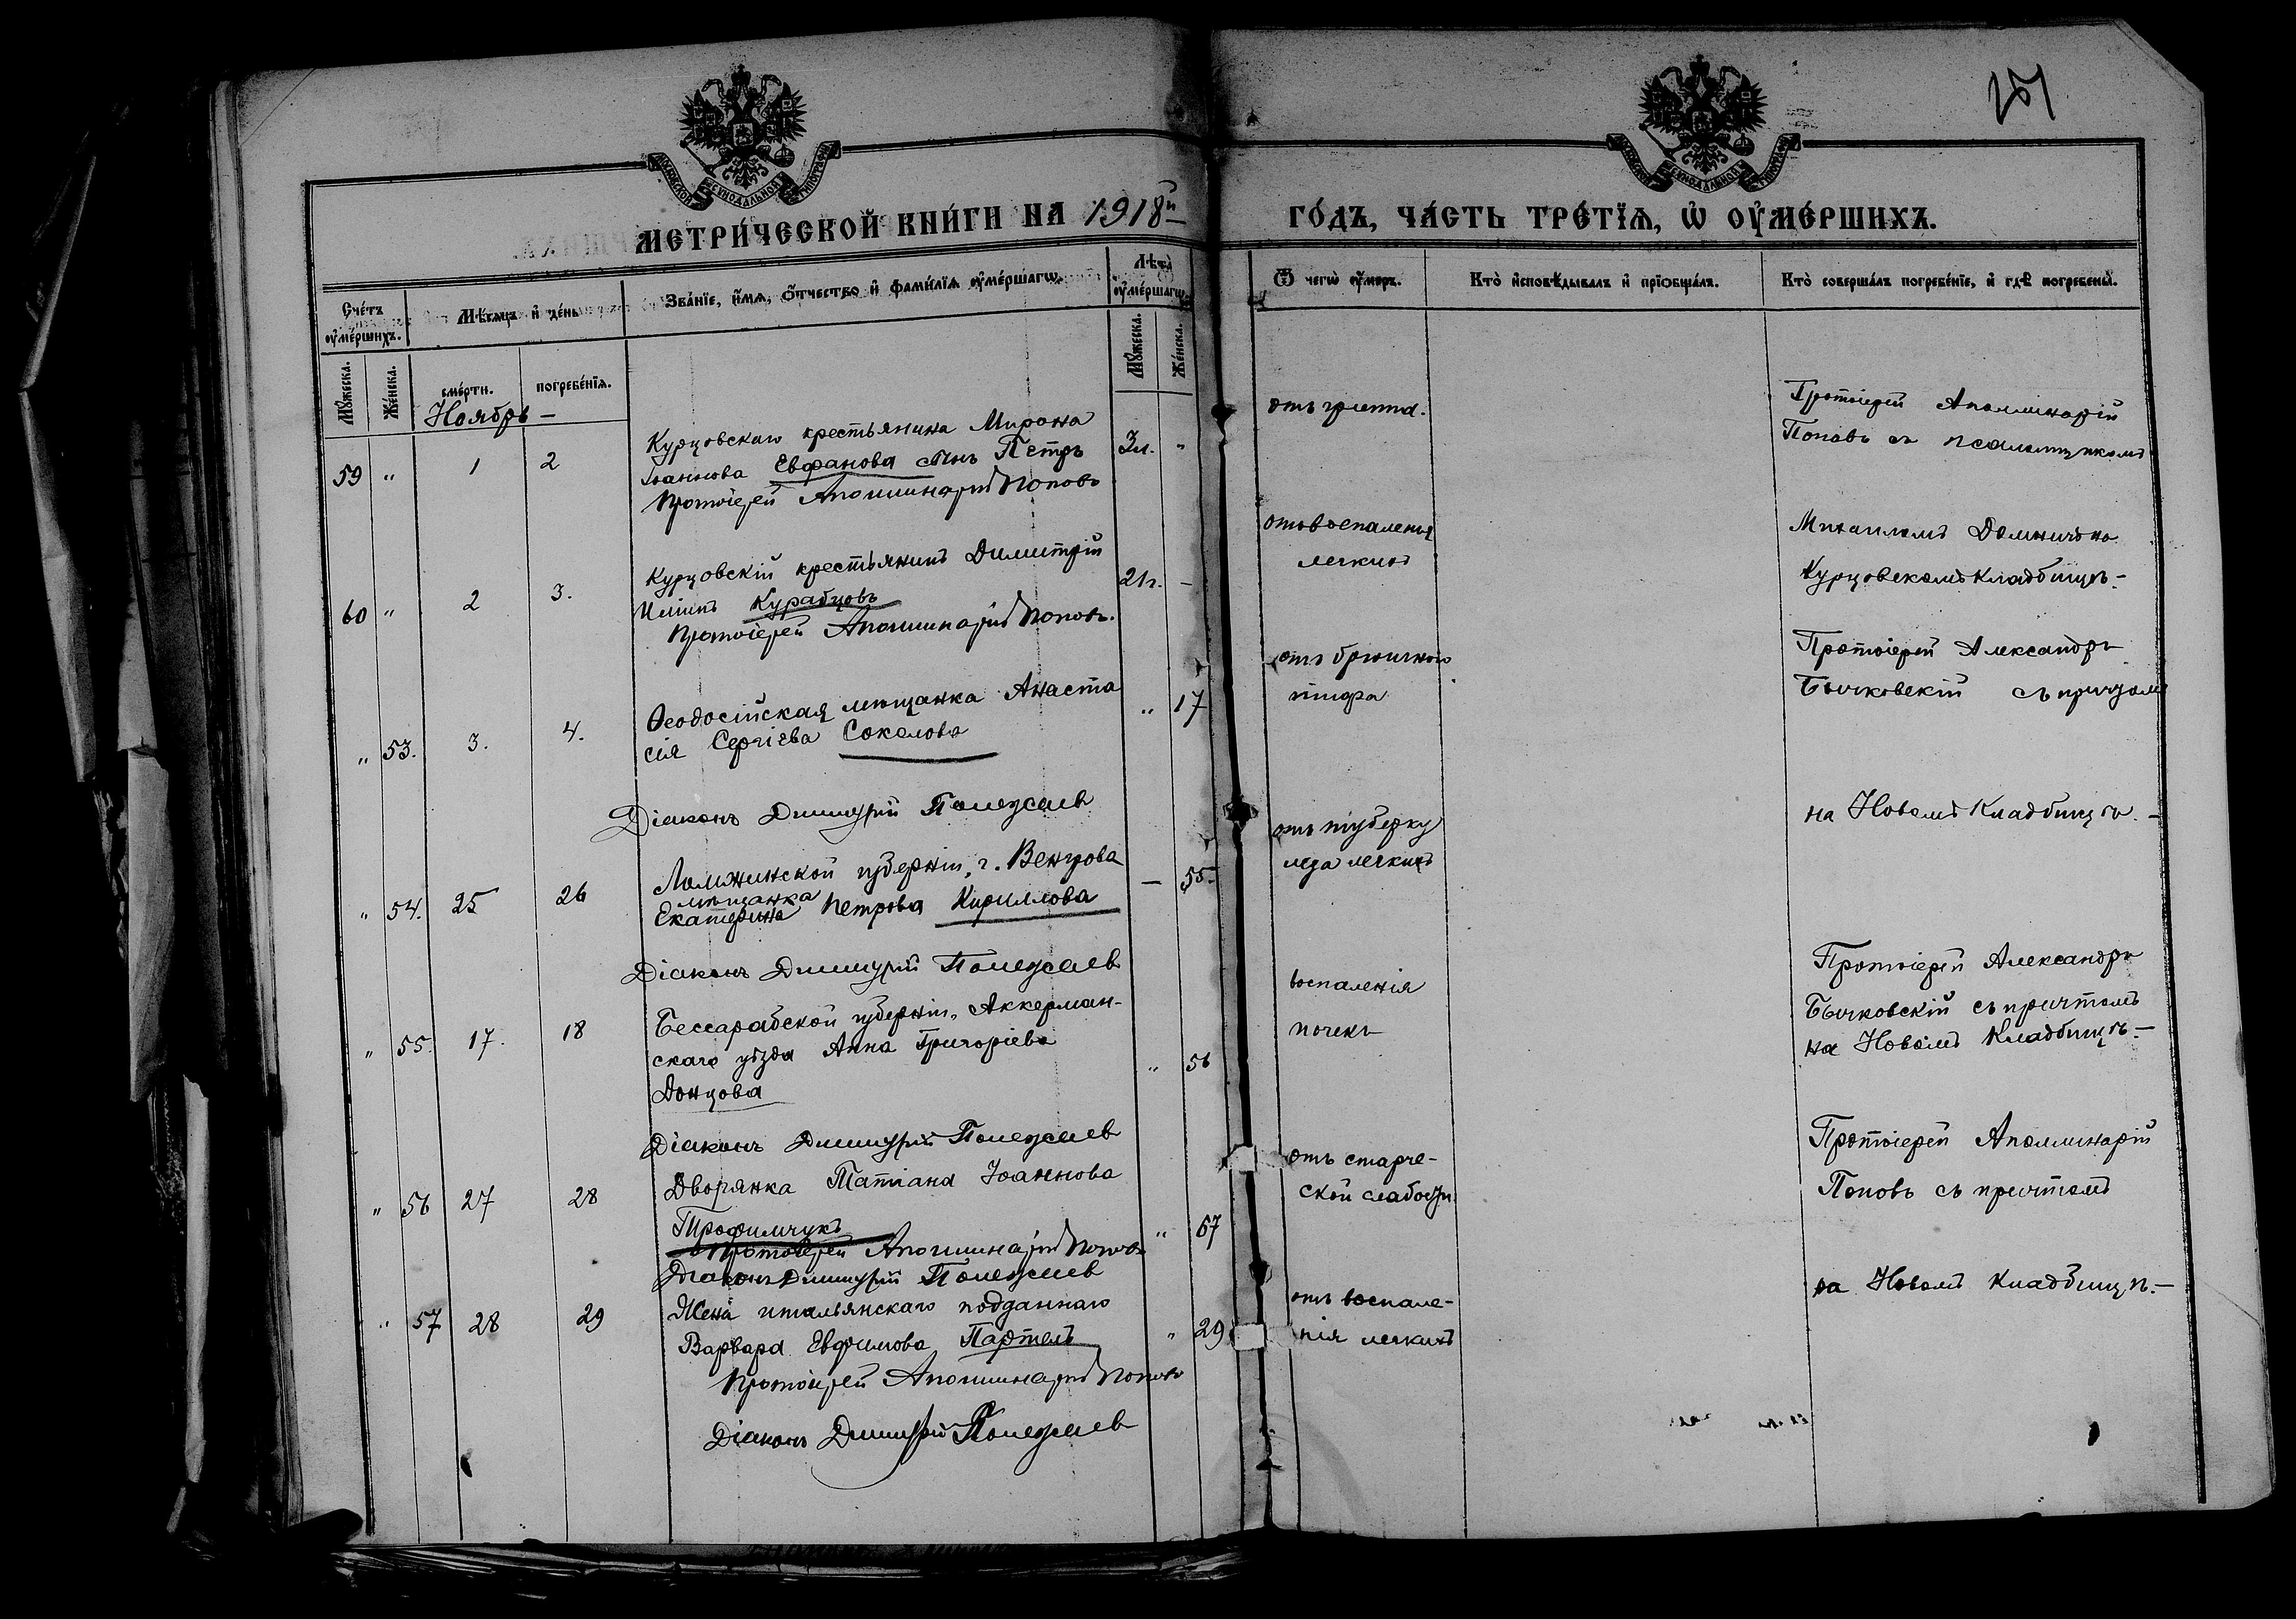 151
МОСКОВСКОЙ СѴНОДАЛЬНОЙ ТИПОГРАФІИ
МОСКОВСКОЙ СѴНОДАЛЬНОЙ ТИПОГРАФІИ
МЕТРИ́ЧЕСКОЙ КНИ́ГИ НА 1918й
ГО́ДЪ, ЧА́СТЬ ТРЕ́ТІѦ, Ѡ҆ ОУ҆МЕ́РШИХЪ.
Сче́тъ оу҆ме́ршихъ.
Мѣ́сѧцъ и҆ де́нь
Зва́нїе, и҆́мѧ, ѻ҆́тчество и҆ фами́лїѧ оу҆ме́ршагѡ.
Лѣ́та оу҆ме́ршагѡ.
Ѿ чегѡ̀ оу҆́меръ.
Кто̀ и҆сповѣ́дывалъ и҆ прїѡбща́лъ.
Кто̀ соверша́лъ погребе́нїе, и҆ гдѣ̀ погребены̀.
Мꙋ́жеска. Же́нска. сме́рти. погребе́нїѧ. Мꙋ́жеска. Же́нска.
Ноябрь –
59 " 1 2
Курцовскаго крестьянина Мирона
Іоаннова Евфанова сынъ Петръ
3л. "
Протоіерей Аполлинарій Поповъ
отъ гриппа.
Протоіерей Аполлинарій
Поповъ съ псаломщикомъ
60 " 2 3.
Курцовскій крестьянинъ Димитрій
Иліинъ Курабцовъ
21г. –
Протоіерей Аполлинарій Поповъ.
отъ воспаленія
легкихъ
Михаиломъ на
Курцовскомъ Кладбищѣ –
" 53. 3. 4.
Ѳеодосійская мѣщанка Анаста
сія Сергіева Соколова
" 17
Діаконъ Димитрій Полежаев
отъ брюшного
тифа
Протоіерей Александръ
Бычковскій съ причтомъ
на Новомъ Кладбищѣ. –
" 54. 25 26
Ломжинской губерніи, г. Венцова
мѣщанка
Екатерина Петрова Кириллова
– 55.
Діаконъ Димитрій Полежаев
отъ туберку
леза легкихъ
Протоіерей Александръ
Бычковскій съ причтомъ
на Новомъ Кладбищѣ. –
" 55. 17. 18
Бессарабской губерніи, Аккерман-
скаго уѣзда Анна Григоріева
Донцова
" 56
Діаконъ Димитрій Полежаев
воспаленія
почекъ
" 56 27 28
Дворянка Татіана Іоаннова
Трофимчукъ
" 67
Протоіерей Аполлинарій Поповъ
Діаконъ Димитрій Полежаев
отъ старче-
ской слабости
Протоіерей Аполлинарій
Поповъ съ причтомъ
на Новомъ Кладбищѣ. –
" 57 28 29
Жена итальянскаго подданнаго
Варвара Евфимова Партель
" 29
Протоіерей Аполлинарій Поповъ
Діаконъ Димитрій Полежаев
отъ воспале-
нія легкихъ